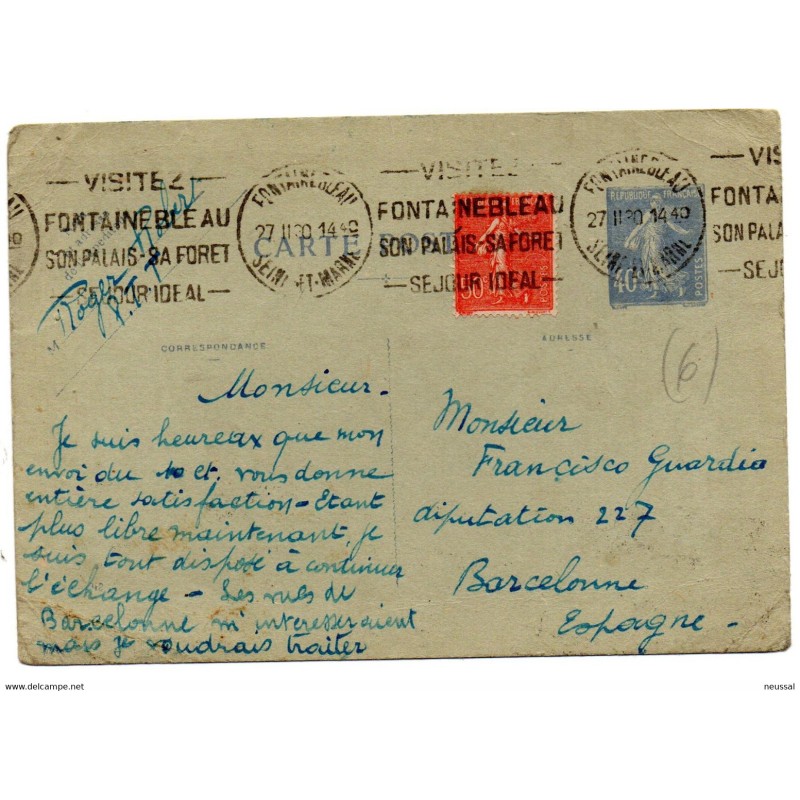 VISITEZ
FONTAINEBLEAU
SON PALAIS-SA FORET
SEJOUR IDEAL
FONTAINEBLEAU
27 II 30 14 40
SEINE-ET-MARNE
VISITEZ
FONTAINEBLEAU
SON PALAIS-SA FORET
SEJOUR IDEAL
50c
FONTAINEBLEAU
27 II 30 14 40
REPUBLIQUE FRANÇAISE
POSTES
40c
CARTE POSTALE
Roger
M
CORRESPONDANCE
ADRESSE
(6)
Monsieur.
Je suis heureux que mon
envoi du 10 ct, vous donne
entière satisfaction - Etant
plus libre maintenant, je
suis tout disposé à continuer
l'échange - Les vues de
Barcelonne m'interesseraient
mais je voudrais traiter
Monsieur
Françisco Guardia
diputation 227
Barcelonne
Espagne -
www.delcampe.net
neussal